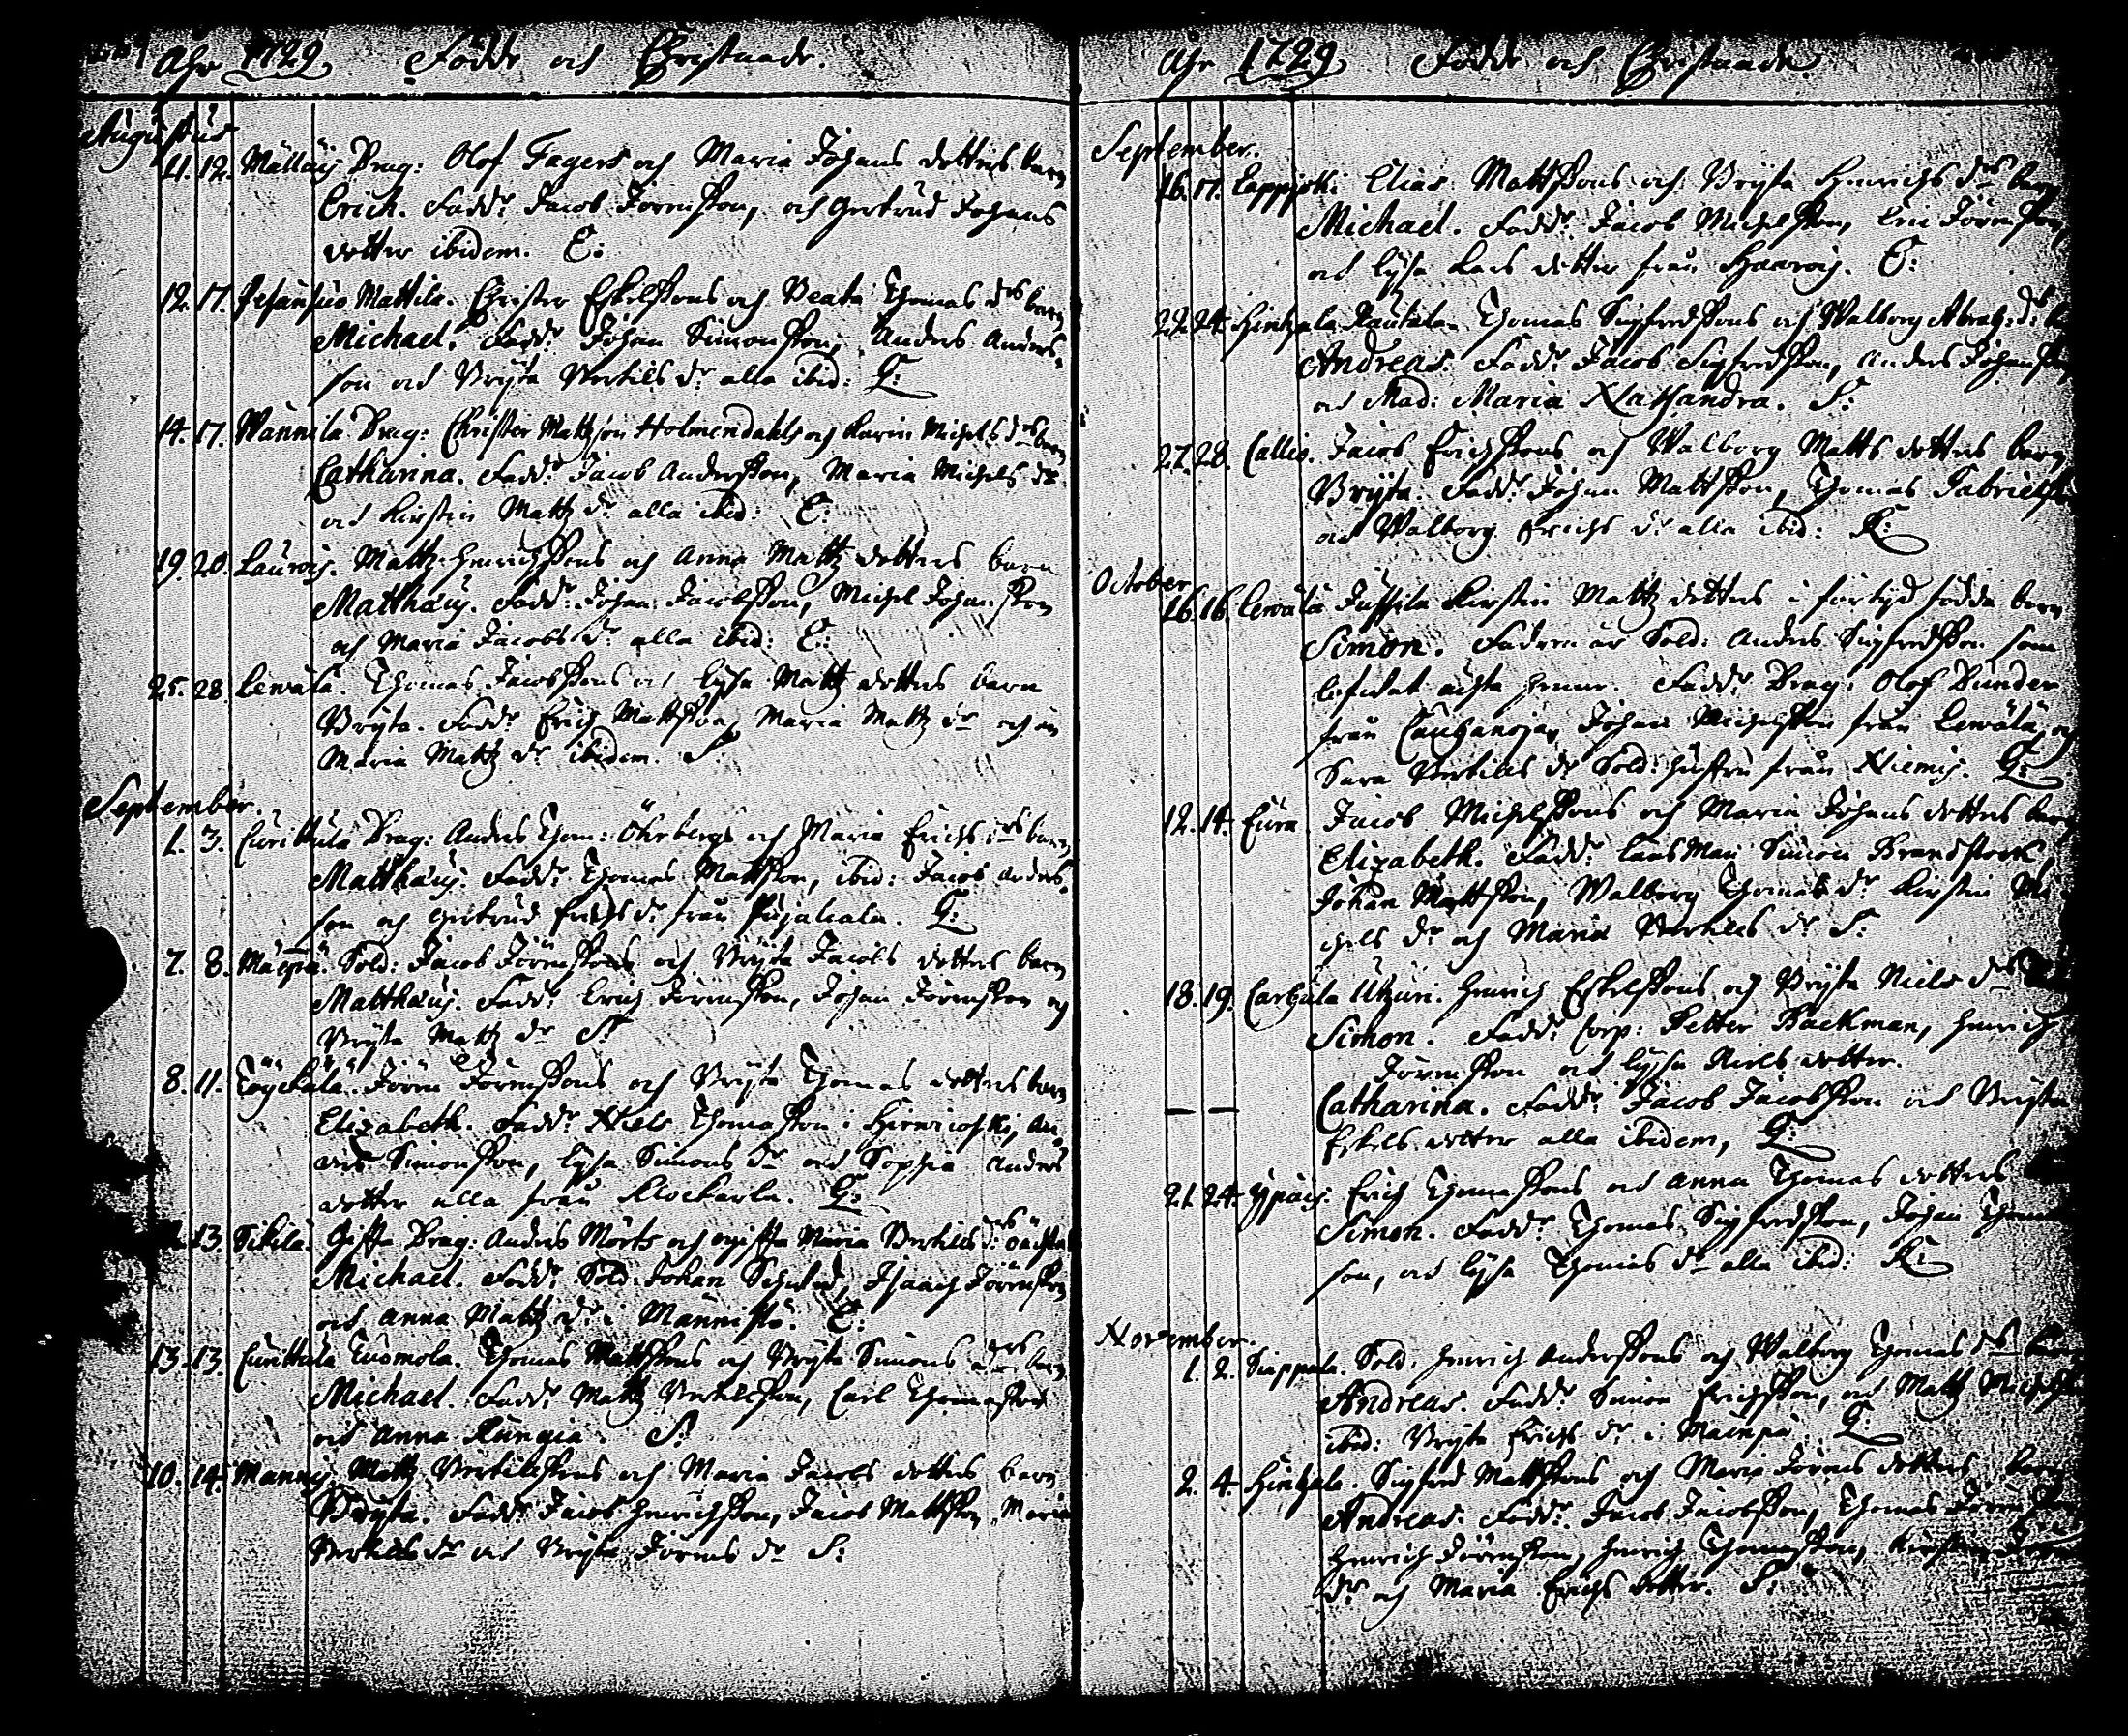 Åhr 1729. Födde och Christnade.
Augustus
11. 12. Mällöis Drag: Olof Fagers och Maria Johans dotters barn
Erich. Fadd.r Jacob Jörenson, och Gertrud Johans
dotter ibidem. C:
12. 17. Mattila. Christer Eskelssons och Beata Thomas d.rs barn
Michael. Fadd.r Johan Simonsson, Anders Anders
son och Bryta Bertils d.r alla ibid: G:
14. 17. Mannila Drag: Christer Mattsson Holmendahls och Karin Michels d.rs barn
Catharina. Fadd.r Jacob Andersson, Maria Michels d.r
och Kirstin Mattz d.r alla ibid: C:
19. 20. Laurois. Mattz Henrichssons och Anna Mattz dotters barn
Matthæus. Fadd.r Johan Jacobsson, Michel Johansson
och Maria Jacobs d.r alla ibid: C:
25. 28. Lewälä. Thomas Jacobssons och Lysa Mattz dotters barn
Bryta. Fadd.r Erich Mattsson, Maria Mattz d.r och
Maria Mattz d.r ibidem. S:
September.
1. 3. Curittula Drag: Anders Thom: Öhrbergs och Maria Erichs d.rs barn
Matthæus. Fadd.r Thomas Mattsson, ibid: Jacob Anders
son och Gertrud Erichs d.r från G:
7. 8. Mäenpä. Sold: Jacob Jörenssons och Bryta Jacobs dotters barn
Matthæus. Fadd.r Erich Jörensson, Johan Jörensson och
Bryta Mattz d.r S:
8. 11. Töyckälä. Jören Jörenssons och Bryta Thomas dotters barn
Elizabeth. Fadd.r Niels Thomasson i Hirwioski, An
ders Simonsson, Lysa Simons d.r och Sophia Anders
dotter alla från Klockarla. G:
13. Sikilä. Giffta Drag: Anders Mörts och ogiffta Maria Bertils d.rs oächta
Michael. Fadd.r Sold: Johan Isaach Jörensson
och Anna Mattz d.r i Männistö. C:
13. 13. Curittula Tuomola. Thomas Mattssons och Bryta Simons d.rs barn
Michael. Fadd.r Mattz Bertilsson, Carl Thomasson
och Anna Rungia. S:
10. 14. Mannois Mattz Bertilssons och Maria Jacobs dotters barn
Bryta. Fadd.r Jacob Henrichsson, Jacob Mattsson, Maria
Bertils d.r och Bryta Jörens d.r S:
Åhr 1729. Födde och Christnade.
September.
16. 17. Lappjoki Elias Mattssons och Bryta Henrichs d.rs barn
Michael. Fadd.r Jacob Michelsson, Eric Jörensson,
och Lysa Lars dotter från Haarois. C:
22. 24. Hintzala Rautala. Thomas Sigfredssons och Walborg Abrah: d.rs
Andreas. Fadd.r Jacob Sigfredsson, Anders Johansson
och Mad: Maria Kathandra. S:
27. 28. Callio. Jacob Erichssons och Walborg Matts dotters barn
Bryta. Fadd.r Johan Mattsson, Thomas Gabrielsson
och Walborg Erichs d.r alla ibid: K:
October
16. 16. Lewälä Jussila Kirstin Mattz dotters i förtyd födda barn
Simon. Fadren är Sold: Anders Sigfredsson som
låfwat ächta henne. Fadd.r Drag: Olof Dunder
från Cauhanoja, Johan Michelsson från Lewälä, och
Sara Bertils d.r Sold: hustru från Niemis. G:
12. 14. Eura. Jacob Michelssons och Maria Johans dotters barn
Elizabeth. Fadd.r Länsman Simon Brandstock,
Johan Mattsson, Walborg Thomas d.r Kirstin Mi
chels d.r och Maria Bertils d.r S:
18. 19. Carhula Uhuri. Henrich Eskelssons och Bryta Niels d.rs
Simon. Fadd.r Corp: Petter Backman, Henrich
Jörensson och Lysa Niels dotter.
— — Catharina. Fadd.r Jacob Jacobsson och Bryta
Eskels dotter alla ibidem, G:
21. 24. Ypäis: Erich Thomassons och Anna Thomas dotters
Simon. Fadd.r Thomas Sigfredsson, Johan Thomas
son, och Lysa Thomas d.r alla ibid: K:
November.
1. 2. Siappala. Sold: Henrich Anderssons och Walborg Thomas d.rs barn
Andreas. Fadd.r Simon Erichsson, och Mattz
ibid: Bryta Erichs d.r i Mäenpä. G:
2. 4. Hintzala. Sigfred Mattssons och Maria Jörens dotters barn
Andreas. Fadd.r Jacob Jacobsson, Thomas Jörensson
Henrich Jörensson, Henrich Thomasson, Kirstin
d.r och Maria Erichs dotter. S: